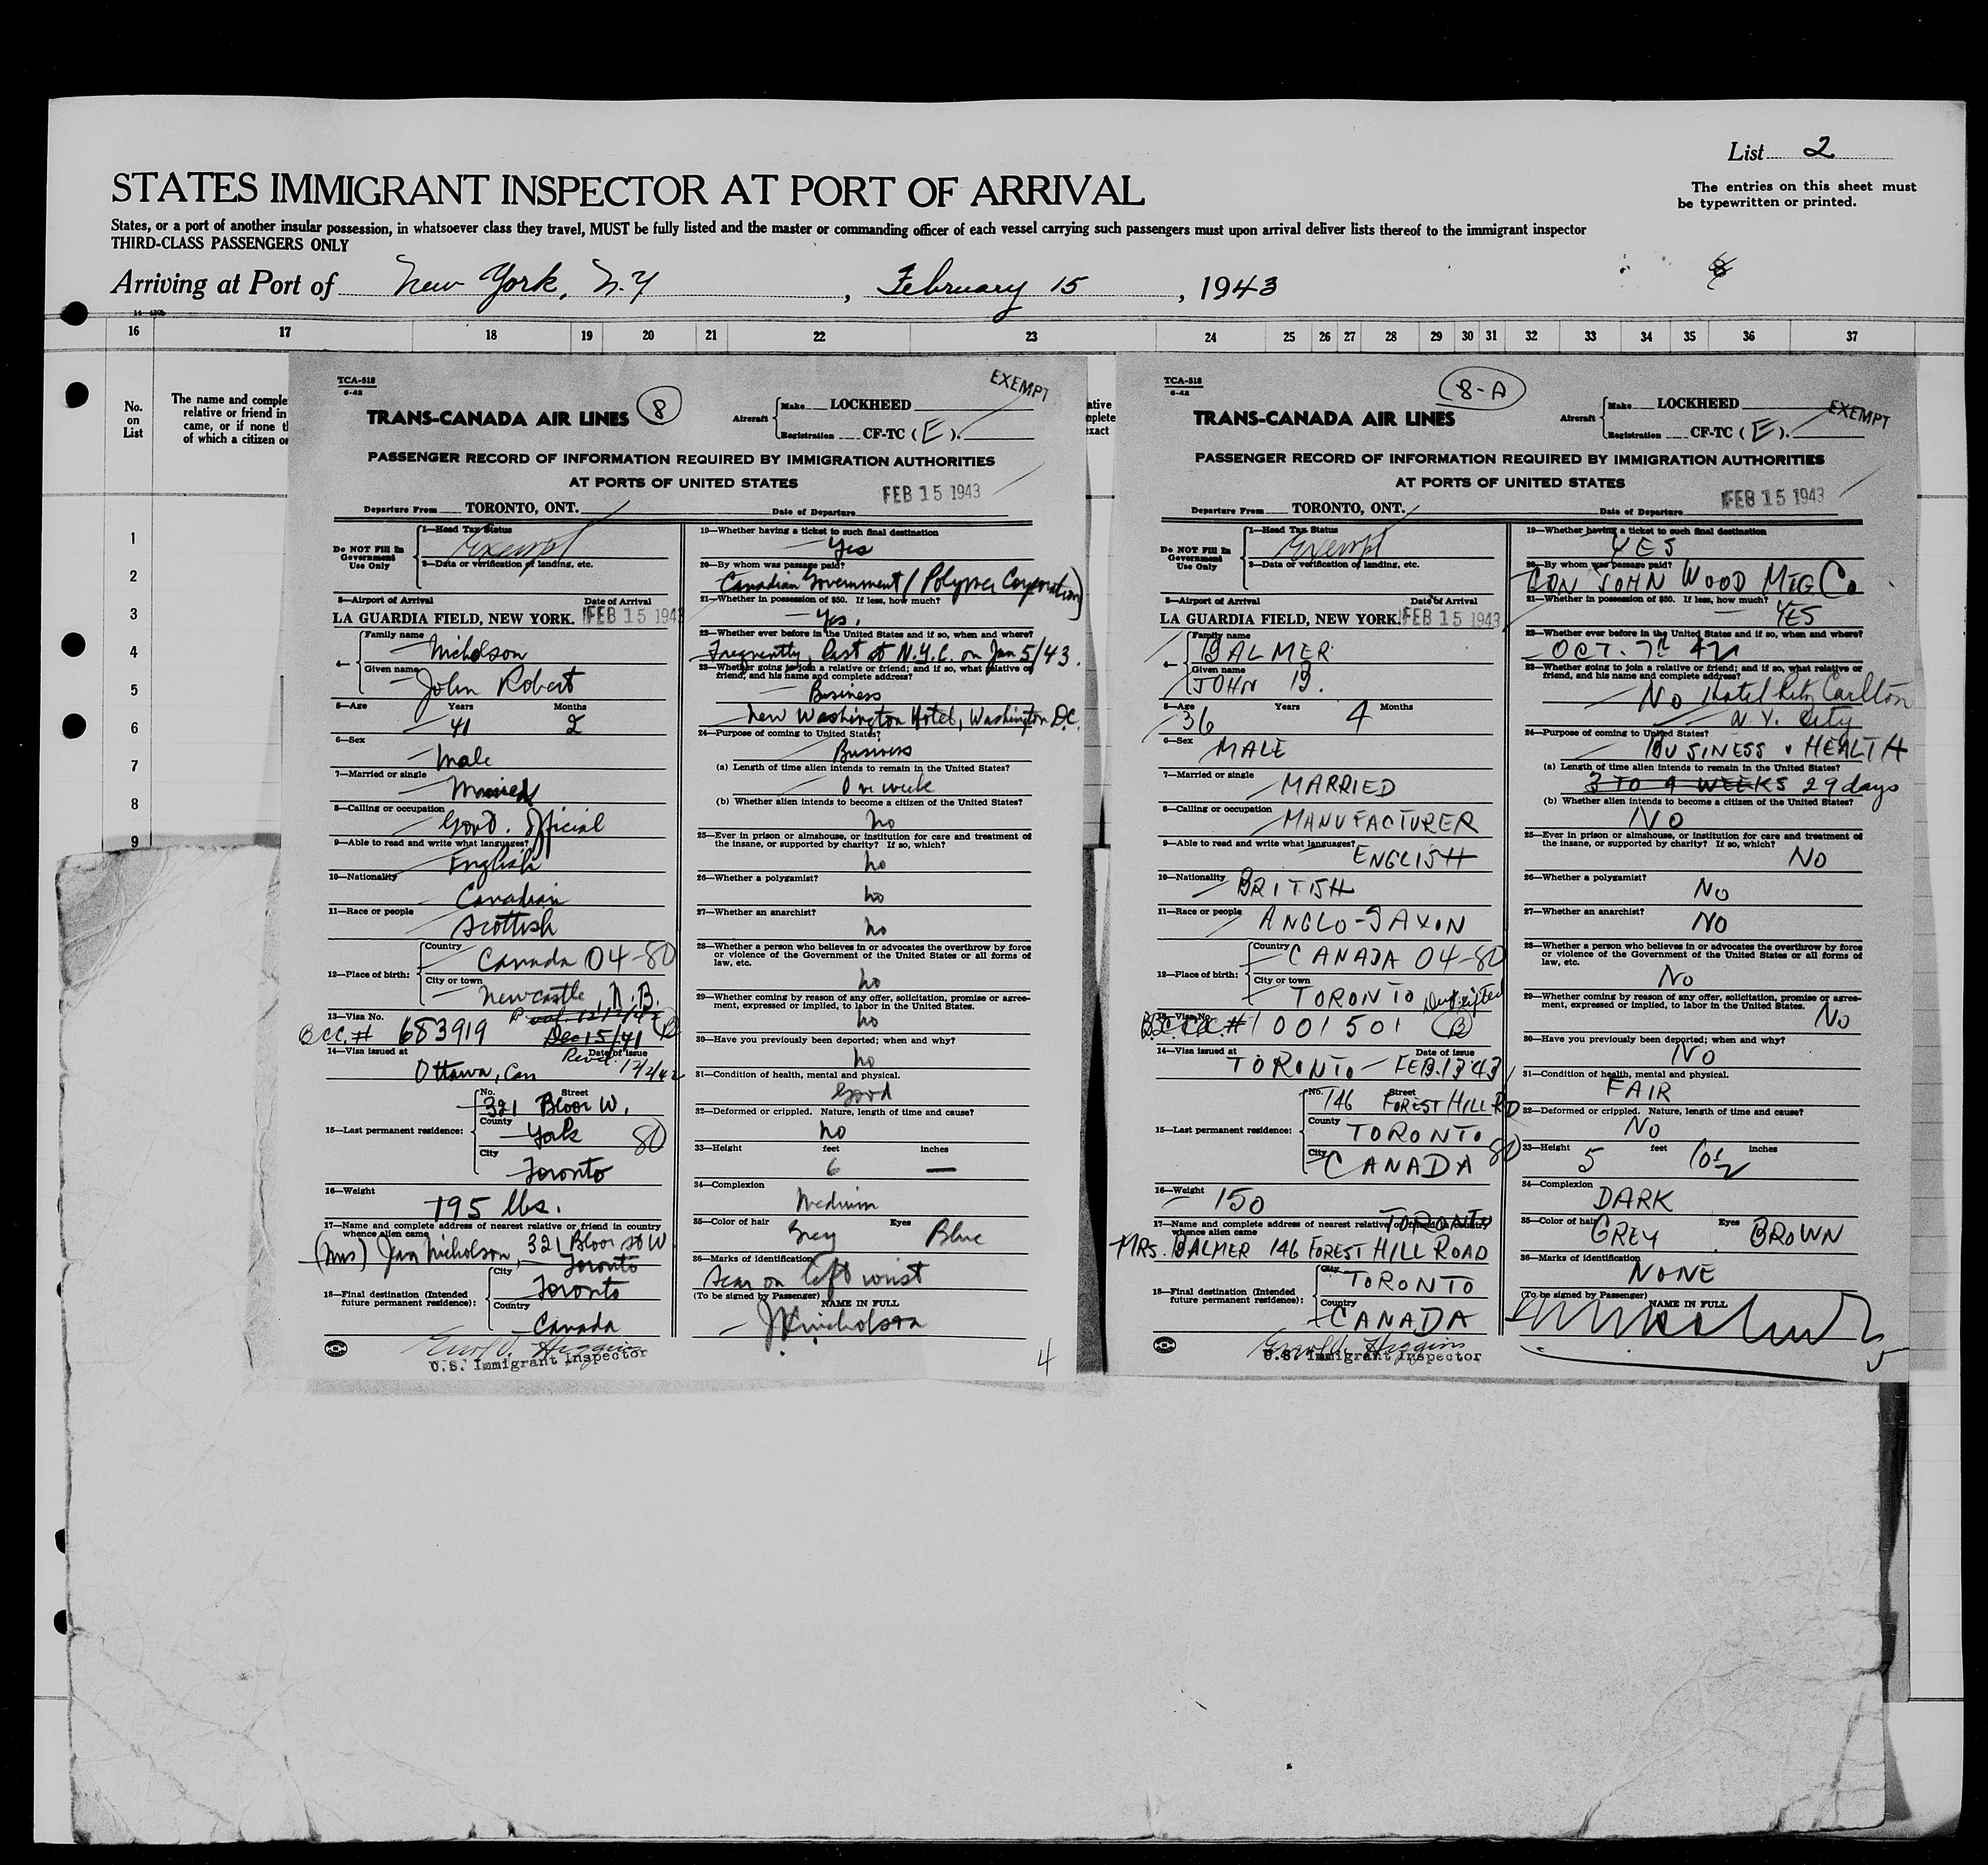 List 2
STATES IMMIGRANT INSPECTOR AT PORT OF ARRIVAL
The entries on this sheet must
be typewritten or printed.
States, or a port of another insular possession, in whatsoever class they travel, MUST be fully listed and the master or commanding officer of each vessel carrying such passengers must upon arrival deliver lists thereof to the immigrant inspector
THIRD-CLASS PASSENGERS ONLY
Arriving at Port of New York, N.Y , February 15 , 1943
16 17 18 19 20 21 22 23 24 25 26 27 28 29 30 31 32 33 34 35 36 37
No.
on
List
The name and comple
relative or friend in
came, or if none t
of which a citizen or
1
2
3
4
5
6
7
8
9
TCA-518
6-42
8
EXEMPT
TRANS-CANADA AIR LINES
Aircraft
Make LOCKHEED
Registration CF-TC (E).
PASSENGER RECORD OF INFORMATION REQUIRED BY IMMIGRATION AUTHORITIES
AT PORTS OF UNITED STATES
Departure From TORONTO, ONT.
Date of Departure FEB 15 1943
Do NOT Fill In
Government
Use Only
1—Head Tax Status
Exempt
2—Data or verification of landing, etc.
3—Airport of Arrival Date of Arrival
LA GUARDIA FIELD, NEW YORK. FEB 15 1943
4—
Family name
Nicholson
Given name
John Robert
5—Age Years Months
41 2
6—Sex
Male
7—Married or single
Married
8—Calling or occupation
Govt. Official
9—Able to read and write what languages?
English
10—Nationality
Canadian
11—Race or people
Scottish
12—Place of birth:
Country
Canada 04-80
City or town
Newcastle, N.B.
13—Visa No.
BCC.# 683919 Dec 15/41
14—Visa issued at Date of issue
Ottawa, Can
15—Last permanent residence:
No. Street
321 Bloor W.
County
York 80
City
Toronto
16—Weight
195 lbs.
17—Name and complete address of nearest relative or friend in country
whence alien came
(Mrs) Jean Nicholson, 321 Bloor St W
Toronto
18—Final destination (Intended
future permanent residence):
City
Toronto
Country
Canada
Higgins
U.S. Immigrant Inspector
19—Whether having a ticket to such final destination
Yes
20—By whom was passage paid?
Canadian Government (Polymer Corporation)
21—Whether in possession of $50. If less, how much?
Yes.
22—Whether ever before in the United States and if so, when and where?
Frequently, last at N.Y.C. on Jan 5/43.
23—Whether going to join a relative or friend; and if so, what relative or
friend, and his name and complete address?
Business
New Washington Hotel, Washington D.C.
24—Purpose of coming to United States?
Business
(a) Length of time alien intends to remain in the United States?
One week
(b) Whether alien intends to become a citizen of the United States?
No
25—Ever in prison or almshouse, or institution for care and treatment of
the insane, or supported by charity? If so, which?
No
26—Whether a polygamist?
No
27—Whether an anarchist?
No
28—Whether a person who believes in or advocates the overthrow by force
or violence of the Government of the United States or all forms of
law, etc.
No
29—Whether coming by reason of any offer, solicitation, promise or agree-
ment, expressed or implied, to labor in the United States.
No
30—Have you previously been deported; when and why?
No
31—Condition of health, mental and physical.
Good
32—Deformed or crippled. Nature, length of time and cause?
No
33—Height feet inches
6 —
34—Complexion
Medium
35—Color of hair Eyes
Grey Blue
36—Marks of identification
Scar on left wrist
(To be signed by Passenger)
NAME IN FULL
JRNicholson
4
ative
mplete
exact
TCA-518
6-42
8-A
EXEMPT
TRANS-CANADA AIR LINES
Aircraft
Make LOCKHEED
Registration CF-TC (E).
PASSENGER RECORD OF INFORMATION REQUIRED BY IMMIGRATION AUTHORITIES
AT PORTS OF UNITED STATES
Departure From TORONTO, ONT.
Date of Departure FEB 15 1943
Do NOT Fill In
Government
Use Only
1—Head Tax Status
Exempt
2—Data or verification of landing, etc.
3—Airport of Arrival Date of Arrival
LA GUARDIA FIELD, NEW YORK. FEB 15 1943
4—
Family name
BALMER
Given name
JOHN B.
5—Age Years Months
36 4
6—Sex
MALE
7—Married or single
MARRIED
8—Calling or occupation
MANUFACTURER
9—Able to read and write what languages?
ENGLISH
10—Nationality
BRITISH
11—Race or people
ANGLO-SAXON
12—Place of birth:
Country
CANADA 04-80
City or town
TORONTO
13—Visa No.
#1001501 B
14—Visa issued at Date of issue
TORONTO — FEB.13 43
15—Last permanent residence:
No. Street
146 FOREST HILL RD
County
TORONTO
City
CANADA 80
16—Weight
150
TORONTO
17—Name and complete address of nearest relative or friend in country
whence alien came
MRS. BALMER 146 FOREST HILL ROAD
18—Final destination (Intended
future permanent residence):
City
TORONTO
Country
CANADA
Higgins
U.S. Immigrant Inspector
19—Whether having a ticket to such final destination
YES
20—By whom was passage paid?
JOHN WOOD MFG Co
21—Whether in possession of $50. If less, how much?
YES
22—Whether ever before in the United States and if so, when and where?
OCT. 7th 42
23—Whether going to join a relative or friend; and if so, what relative or
friend, and his name and complete address?
No Hotel Ritz Carlton
N.Y. City
24—Purpose of coming to United States?
BUSINESS & HEALTH
(a) Length of time alien intends to remain in the United States?
3 TO 4 WEEKS 29 days
(b) Whether alien intends to become a citizen of the United States?
NO
25—Ever in prison or almshouse, or institution for care and treatment of
the insane, or supported by charity? If so, which?
NO
26—Whether a polygamist?
NO
27—Whether an anarchist?
NO
28—Whether a person who believes in or advocates the overthrow by force
or violence of the Government of the United States or all forms of
law, etc.
No
29—Whether coming by reason of any offer, solicitation, promise or agree-
ment, expressed or implied, to labor in the United States.
No
30—Have you previously been deported; when and why?
NO
31—Condition of health, mental and physical.
FAIR
32—Deformed or crippled. Nature, length of time and cause?
NO
33—Height feet inches
5 10½
34—Complexion
DARK
35—Color of hair Eyes
GREY BROWN
36—Marks of identification
NONE
(To be signed by Passenger)
NAME IN FULL